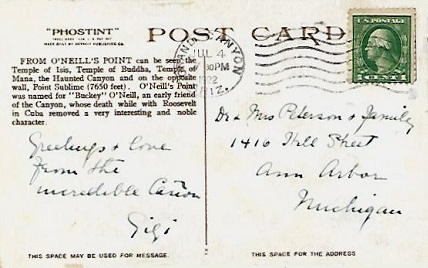 "PHOSTINT"
POST CARD
FROM O'NEILL'S POINT can be seen the
Temple of Isis, Temple of Buddha, Temple of
Manu, the Haunted Canyon and on the opposite
wall, Point Sublime (7650 feet). O'Neill's Point
was named for "Buckey" O'Neill, an early friend
of the Canyon, whose death while with Roosevelt
in Cuba removed a very interesting and noble
character.
Greetings & love
from the
incredible Cañon
Gigi
THIS SPACE MAY BE USED FOR MESSAGE.
CANYON
JUL 4
30PM
1922
ARIZ.
U.S. POSTAGE
1 CENT 1
Dr & Mrs Peterson & Family
1416 Hill Street
Ann Arbor
Michigan
THIS SPACE IS FOR THE ADDRESS.